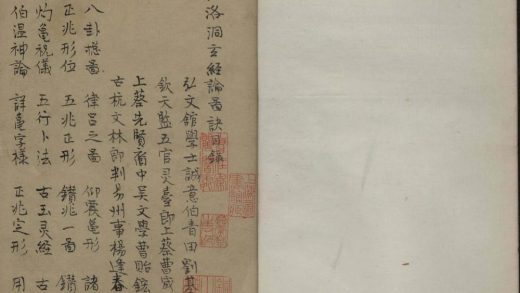 洛洞玄經論圖訣目錄
弘文館學士誠意伯青田劉基
欽天監五官灵臺郎上蔡曹
上蔡先賢裔中吴文學曹貽
古杭文林郎判易州事楊逢春
八卦捴圖 律吕之圖 仰震龜形 諸
正兆形位 五兆正形 鑚兆一圖 鑚
灼龜祝儀 五行卜法 古玉灵經 古
伯温神論 詳龜字樣 正兆定形 用